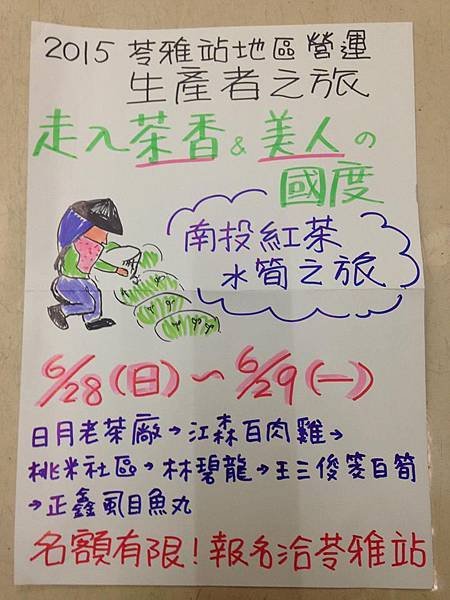 2015 苓雅站地區營運
生產者之旅
走入茶香&美人の
國度
南投紅茶
水筍之旅
6/28(日)~6/29(一)
日月老茶廠→江森白肉雞→
桃米社區→林碧龍→王三俊茭白筍
→正鑫虱目魚丸
名額有限!報名洽苓雅站